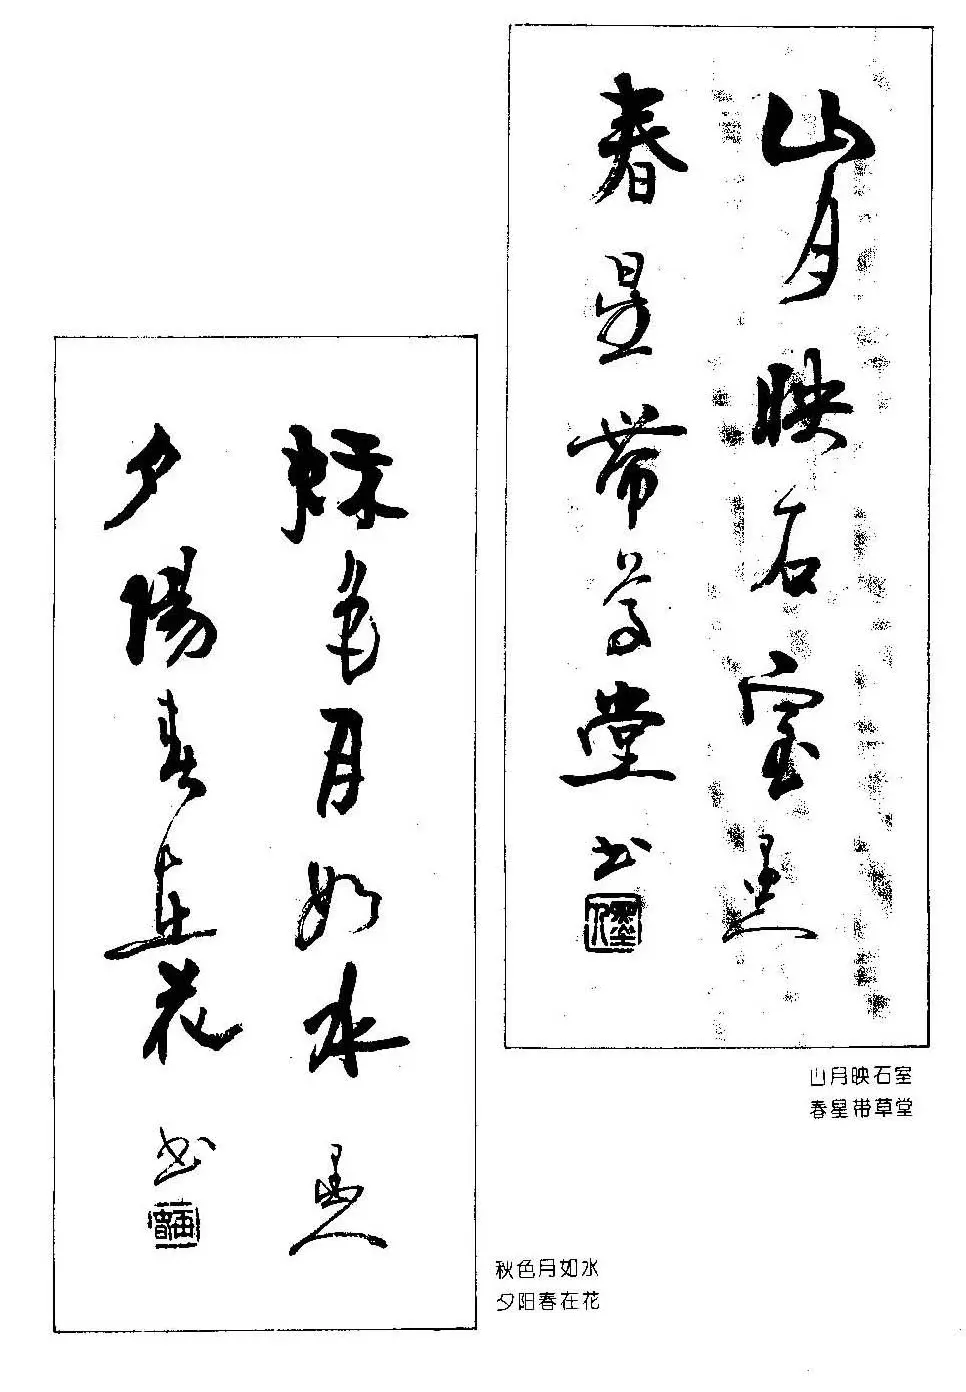 山月映石室墨人
春星带草堂书
山月映石室
春星带草堂
秋色月如水墨人
夕陽春在花书
秋色月如水
夕阳春在花